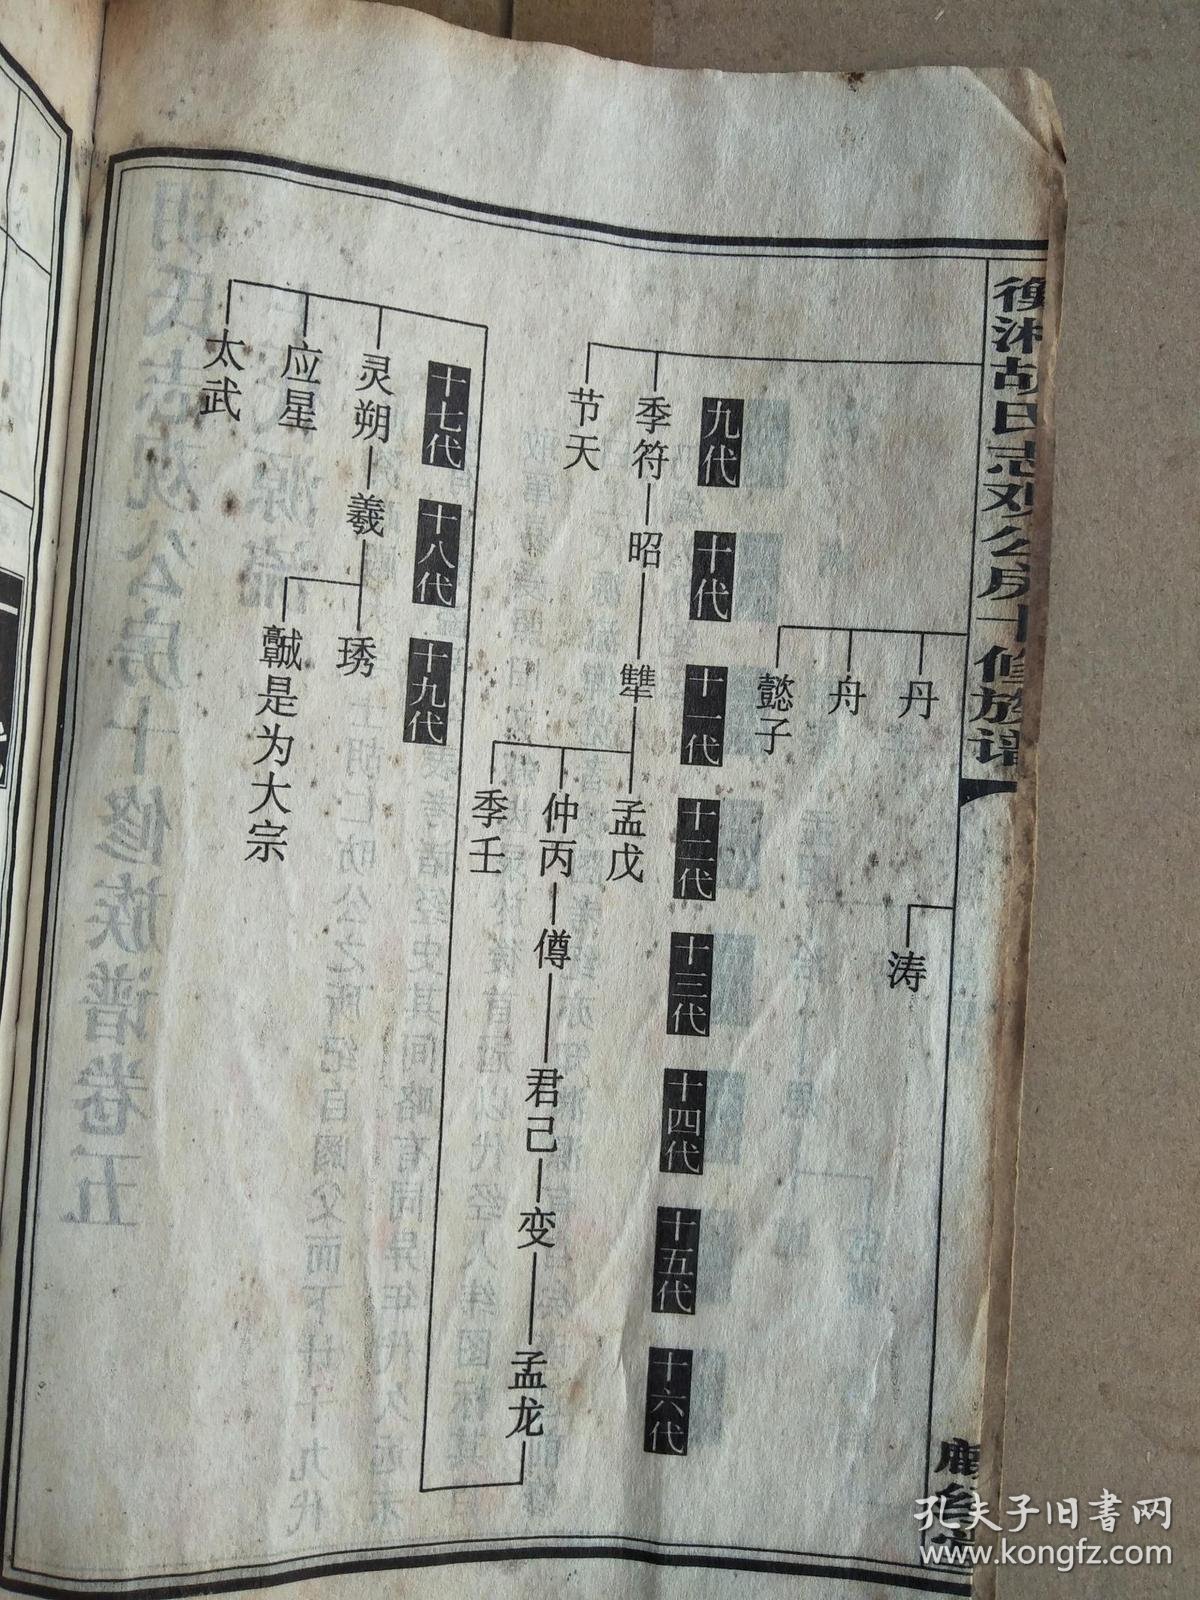 衡湘胡氏志观公房十修族谱
涛
丹
舟
懿子
九代
十代
十一代
十二代
十三代
十四代
十五代
十六代
季符
昭
犨
孟戊
节天
仲丙
傅
君己
变
孟龙
季壬
十七代
十八代
十九代
灵朔
羲
琇
应星
是为大宗
太武
孔夫子旧书网
www.kongfz.com